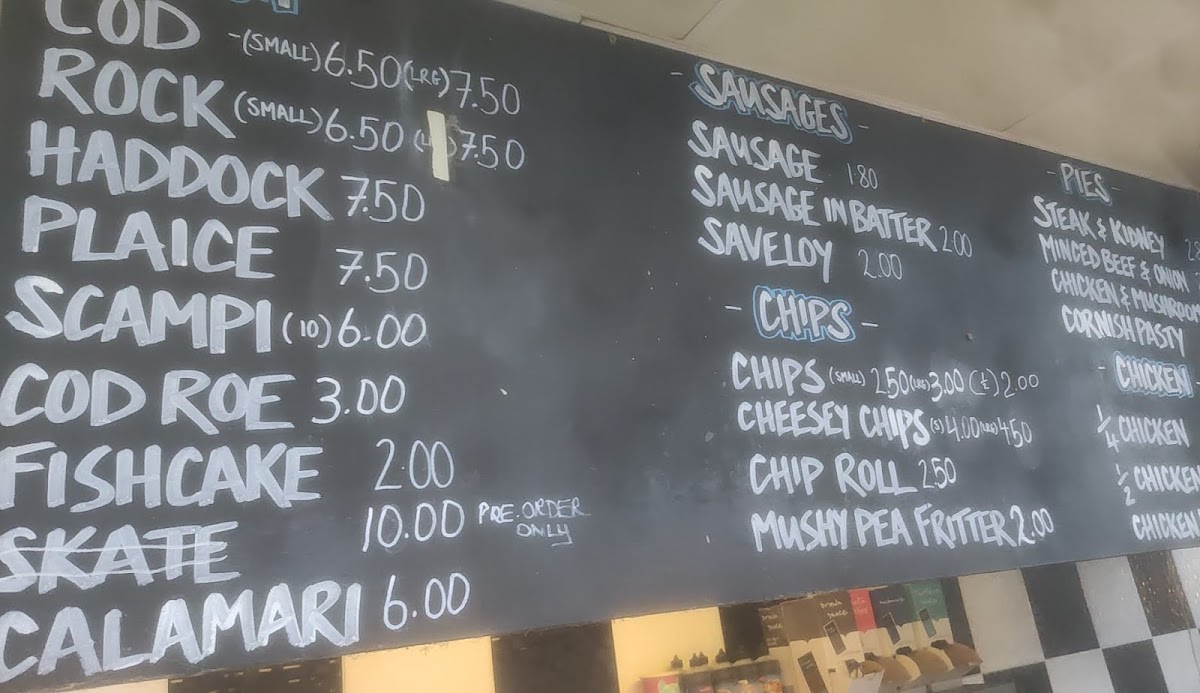 COD -(SMALL) 6.50 (LRG) 7.50
ROCK (SMALL) 6.50 (L 7.50
HADDOCK 7.50
PLAICE 7.50
SCAMPI (10) 6.00
COD ROE 3.00
FISHCAKE 2.00
SKATE 10.00 PRE-ORDER
ONLY
CALAMARI 6.00
- SAUSAGES -
SAUSAGE 1.80
SAUSAGE IN BATTER 2.00
SAVELOY 2.00
- CHIPS -
CHIPS (SMALL) 2.50 (LRG) 3.00 (½) 2.00
CHEESEY CHIPS (S) 4.00 (LRG) 4.50
CHIP ROLL 2.50
MUSHY PEA FRITTER 2.00
- PIES -
STEAK & KIDNEY
MINCED BEEF & ONION
CHICKEN & MUSHROOM
CORNISH PASTY
- CHICKEN
¼ CHICKEN
½ CHICKEN
CHICKEN